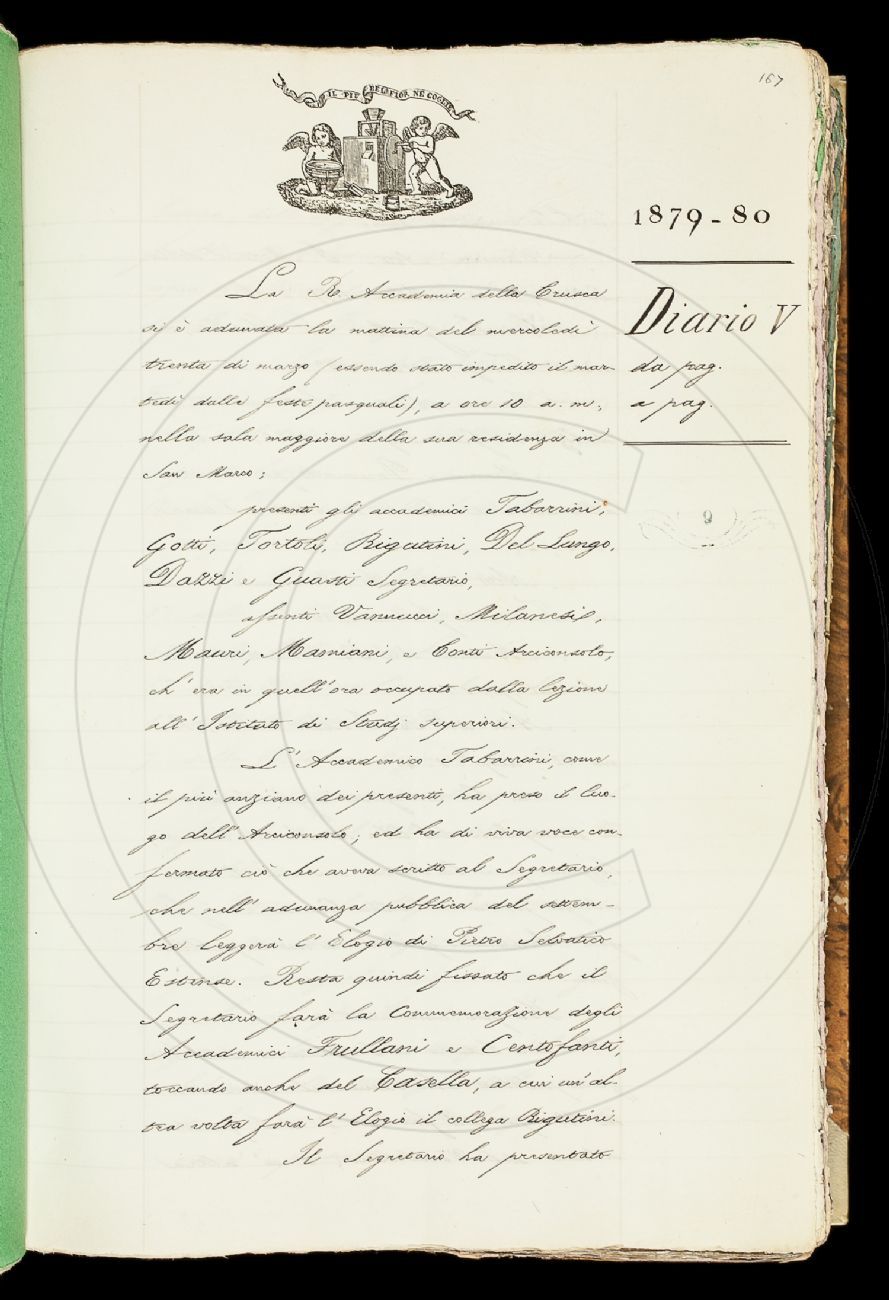 167
IL PIÙ BEL FIOR NE COGLIE
1879-80
Diario V
da pag.
a pag.
9
La R. Accademia della Crusca
si è adunata la mattina del mercoledì
trenta di marzo (essendo stato impedito il mar-
tedì dalle feste pasquali), a ore 10 a. m.,
nella sala maggiore della sua residenza in
San Marco;
presenti gli accademici Tabarrini,
Gotti, Tortoli, Rigutini, Del Lungo,
Dazzi e Guasti Segretario,
assenti Vannucci, Milanesi,
Mauri, Mamiani, e Conti Arciconsolo,
ch' era in quell' ora occupato dalla lezione
all' Istituto di Studj superiori.
L' Accademico Tabarrini, come
il più anziano dei presenti, ha preso il luo-
go dell' Arciconsolo; ed ha di viva voce con-
fermato ciò che aveva scritto al Segretario,
che nell' adunanza pubblica del settem-
bre leggerà l' Elogio di Pietro Selvatico
Estense. Resta quindi fissato che il
Segretario farà la Commemorazione degli
Accademici Frullani e Centofanti,
toccando anche del Casella, a cui un' al-
tra volta farà l' Elogio il collega Rigutini.
Il Segretario ha presentato